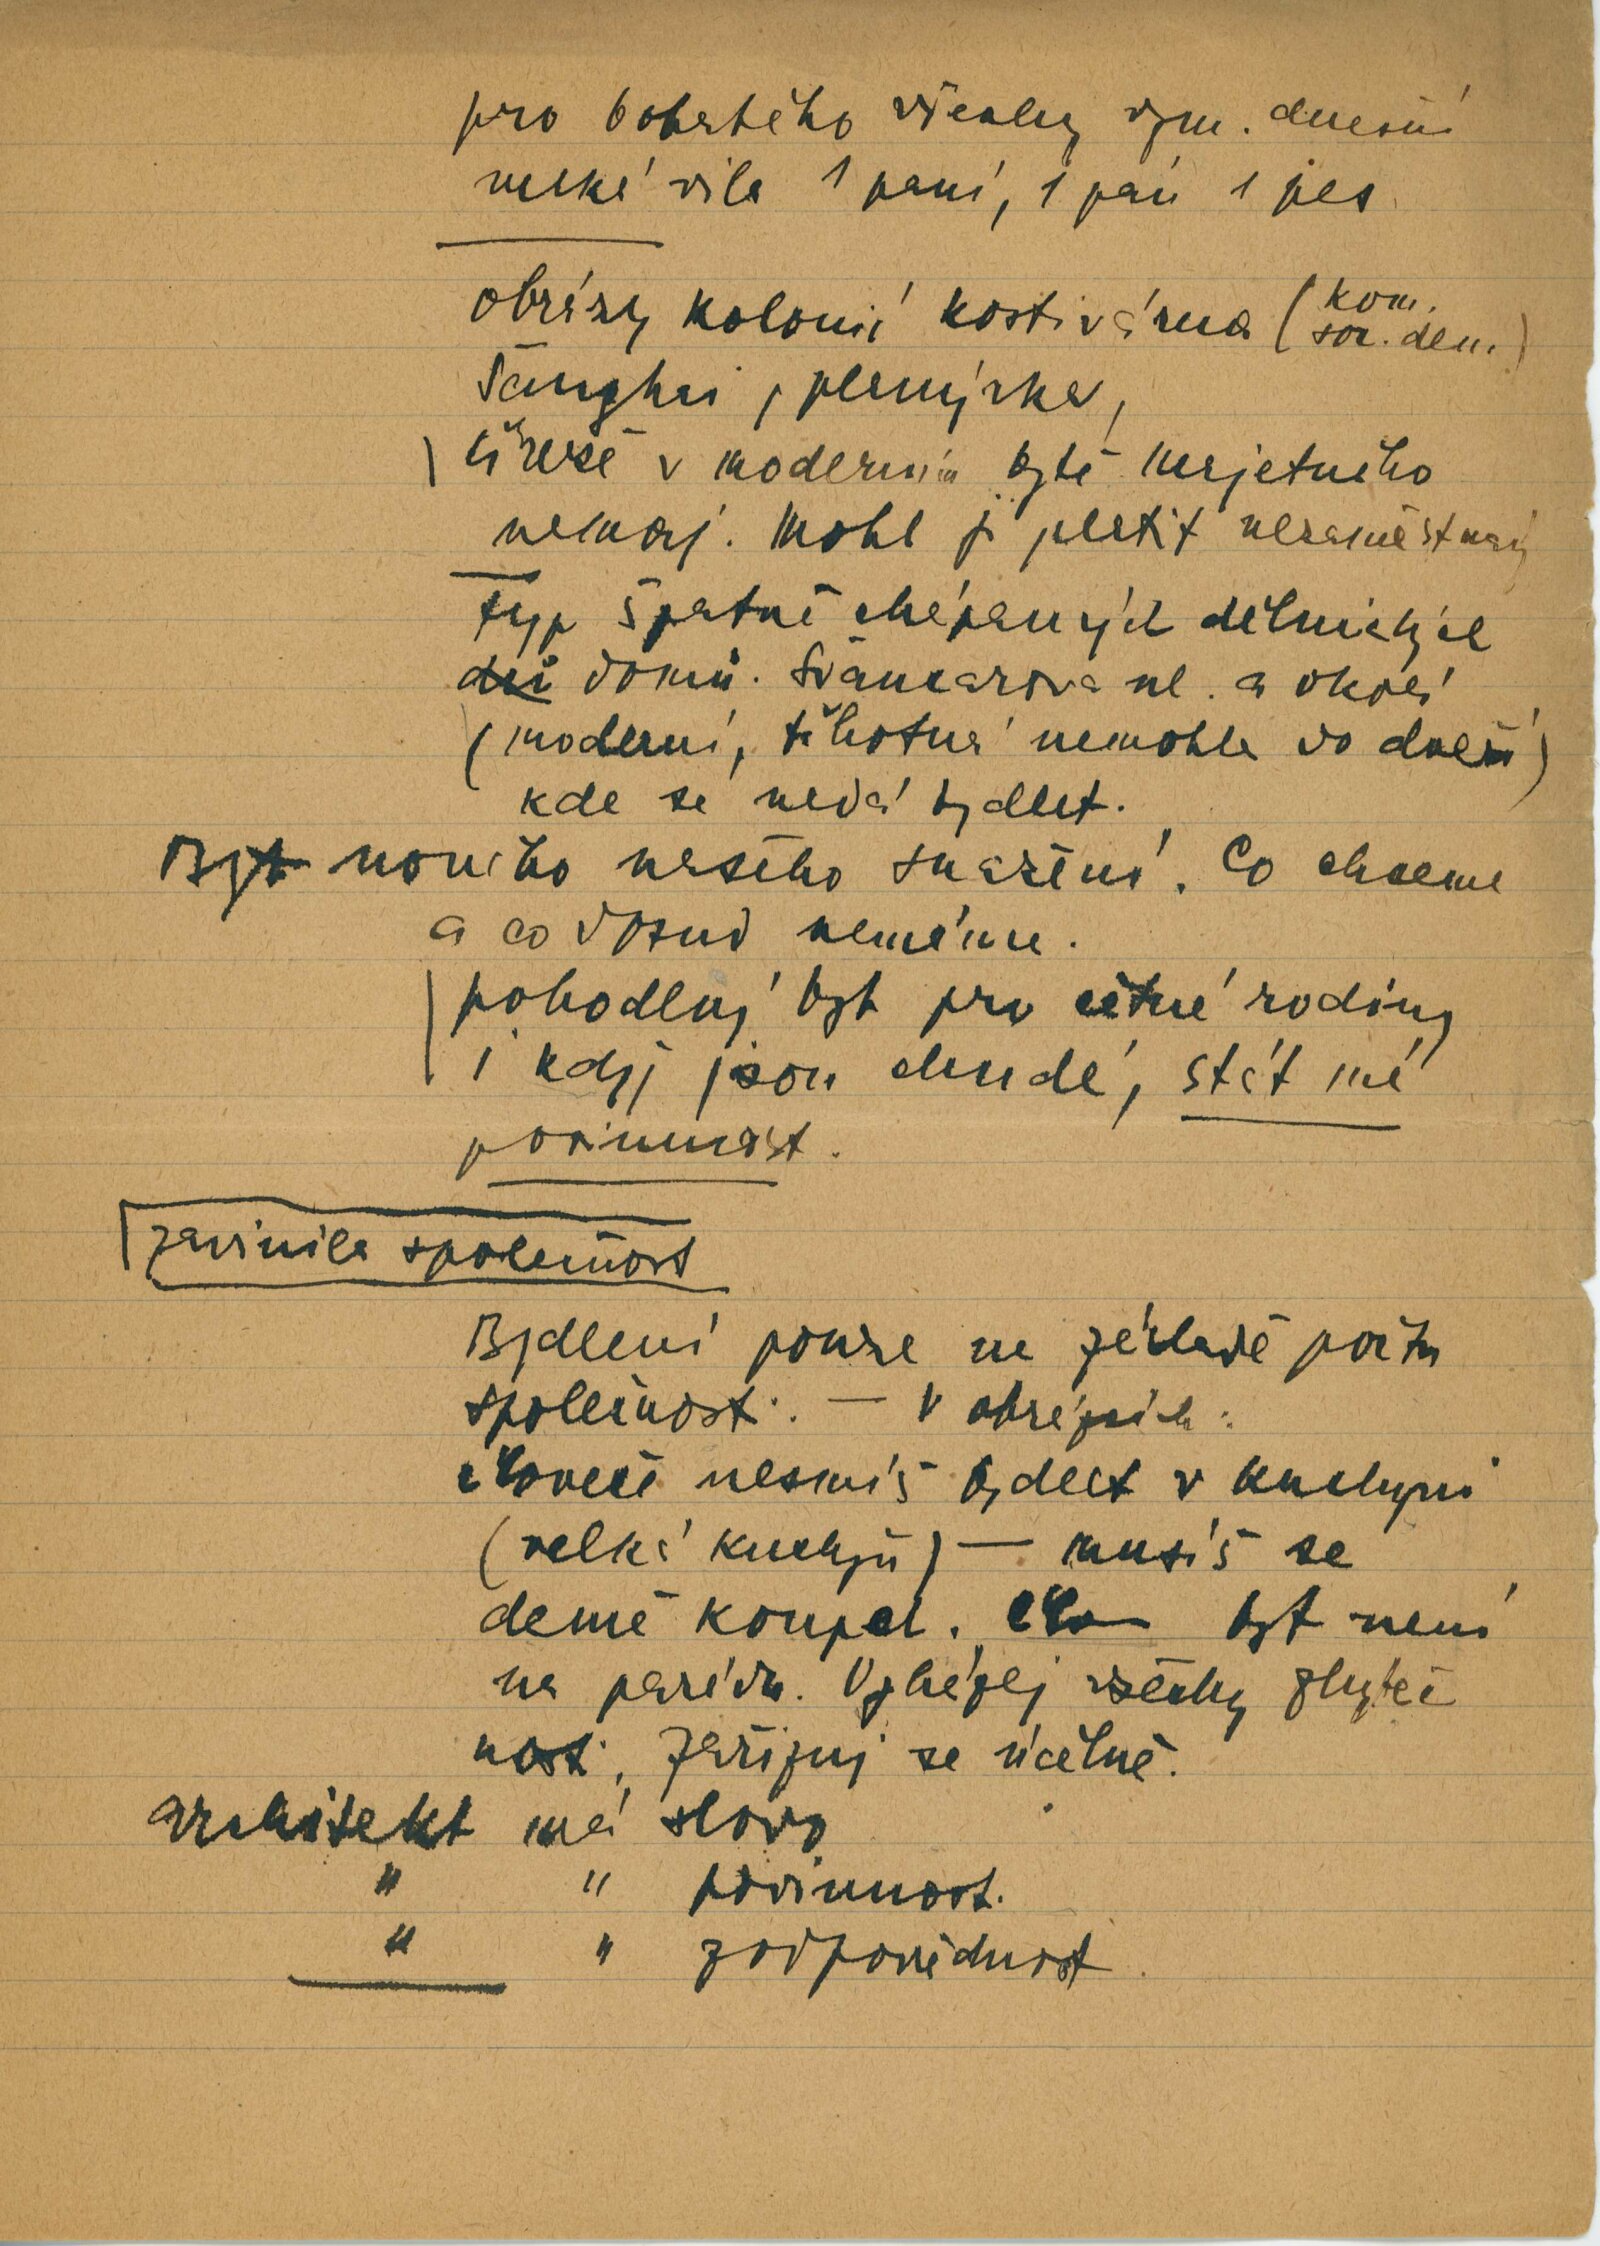 pro bohatého všecky vym. dnešní
velká vila 1 paní, 1 pán 1 pes
obrázy kolonií kostivárna (kom. soc. dem.)
Šanghai, planýrka,
v moderním bytě majetného
nemoj. mohl ji platit nezaměstnaný
typ špatně chápaných dělnických
domů. Švancarova ul. a okolí
(moderní, těhotná nemohla do dveří)
kde se nedá bydlet.
Byt nového našeho snažení. Co chceme
a co dosud nemáme.
pohodlný byt pro četné rodiny
i když jsou chudé, stát má
povinnost.
zavinila společnost
Bydlení pouze na základě počtu
společnosti. — V obrázcích:
člověče nesmíš bydlet v kuchyni
(velká kuchyň) — musíš se
denně koupat. byt není
na parádu. Vyházej všecky zbyteč
nosti, zařizuj se účelně.
architekt má slovo
" " povinnost.
" " zodpovědnost